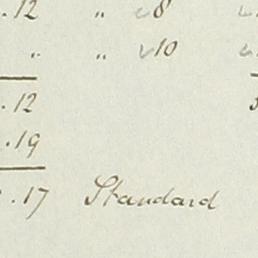 .12 " 8
" " 10
.12
.19
.17 Standard